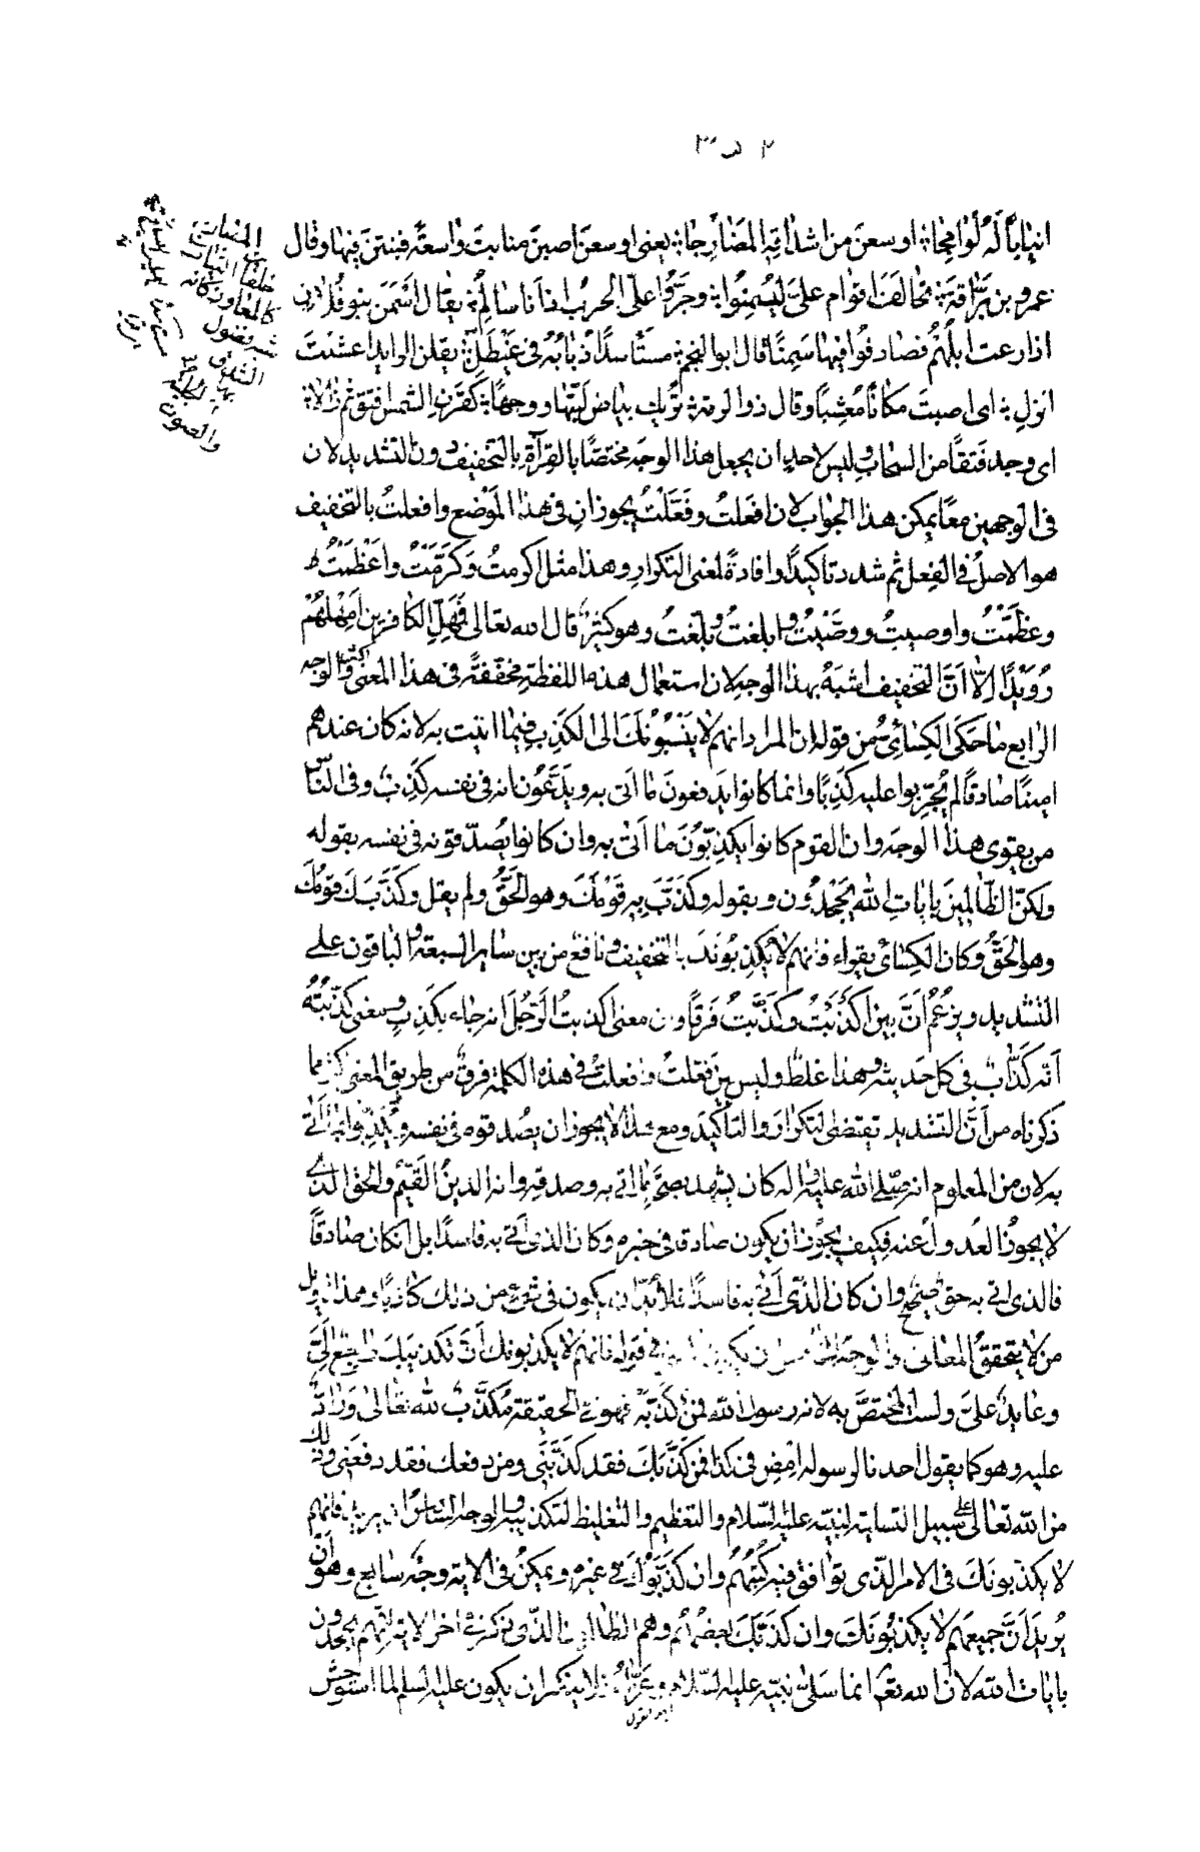 انيابًا له لوامجا اوسعن من اشداقه المضارجا يعنى اوسعن اصبن منابت واسعة فنبتن فيها وقال
عمرو بن براقة تحالف اقوام علىّ ليسمنوا وجروا علىّ الحرب اذ انا سالم يقال اسمن بنو فلان
اذا رعت ابلهم فصادفوا فيها سمنًا قال ابو النجم مستأسدًا ذبابه فى غيطل يقلن للرايد اعشبت
انزل اى اصبت مكانًا معشبًا وقال ذو الرمة تريك بياض لبتها ووجها كقرن الشمس افتق ثم زالا
اى وجد فتقًا من السحاب وليس لاحد ان يجعل هذا الوجه مختصًا بالقراءة بالتخفيف دون التشديد لان
فى الوجهين معًا يمكن هذا الجواب لان افعلت وفعّلت يجوزان فى هذا الموضع وافعلت بالتخفيف
هو الاصل فى الفعل ثم شدد تاكيدًا وافادةً لمعنى التكرار وهذا مثل اكرمت وكرّمت واعظمت
وعظّمت واوصيت ووصّيت وابلغت وبلّغت وهو كثير قال الله تعالى فمهّل الكافرين امهلهم
رويدًا الّا انّ التخفيف اشبه بهذا الوجه لان استعمال هذه اللفظة مخففةً فى هذا المعنى اكثر والوجه
الرابع ما حكى الكسائى من قوله ان المراد انهم لا ينسبونك الى الكذب فيما اتيت به لانه كان عندهم
امينًا صادقًا لم يجرّبوا عليه كذبًا وانما كانوا يدفعون ما اتى به ويدّعون انه فى نفسه كذب وفى الناس
من يقوى هذا الوجه وان القوم كانوا يكذّبون ما اتى به وان كانوا يصدّقونه فى نفسه بقوله
ولكنّ الظالمين بايات الله يجحدون وبقوله وكذّب به قومك وهو الحقّ ولم يقل وكذّبك قومك
وهو الحقّ وكان الكسائى يقرا فانهم لا يكذبونك بالتخفيف ونافع من بين ساير السبعة والباقون على
التشديد ويزعم انّ بين اكذبت وكذّبت فرقًا وان معنى اكذبت الرجل انه جاء بكذب ومعنى كذّبته
انّه كذّاب فى كل حديثه وهذا غلط وليس بين فعّلت وافعلت فى هذه الكلمة فرق من طريق المعنى اكثر مما
ذكرناه من انّ التشديد يقتضى التكرار والتاكيد ومع هذا لا يجوز ان يصدقوه فى نفسه ويكذّبوا بما اتى
به لان من المعلوم انه صلّى الله عليه واله كان يشهد بصحة ما اتى به وصدقه وانه الدين القيّم والحق الذى
لا يجوز العدول عنه فكيف يجوز ان يكون صادقا فى خبره وكان الذى اتى به فاسدًا بل ان كان صادقًا
فالذى اتى به حق صحيح وان كان الذى اتى به فاسدًا فلا بدّ ان يكون فى شىء من ذلك كاذبًا وهذا تاويل
من لا يتحقق المعانى والوجه الخامس ان يكون المعنى فى قوله فانهم لا يكذبونك انّ تكذيبك راجع الىّ
وعايد علىّ ولست المختصّ به لانه رسول الله فمن كذّبه فهو فى الحقيقة مكذّب لله تعالى ورادّ
عليه وهو كما يقول احدنا لرسوله امض فى كذا فمن كذّبك فقد كذّبنى ومن دفعك فقد دفعنى وذلك
من الله تعالى على سبيل التسلية لنبيّه عليه السّلام والتعظيم والتغليظ لتكذيبه والوجه السادس ان يريد فانهم
لا يكذبونك فى الامر الّذى توافق فيه كتبهم وان كذّبوك فى غيره ويمكن فى الاية وجه سابع وهو انّ
يريد انّ جميعهم لا يكذبونك وان كذّبك بعضهم وهم الظالمون الذى ذكرهم فى اخر الاية انّهم يجحدون
بايات الله لان الله تعم انما سلّى نبيّه عليه السّلام وعزّاه فلا ينكر ان يكون عليه السلم لما استوحش